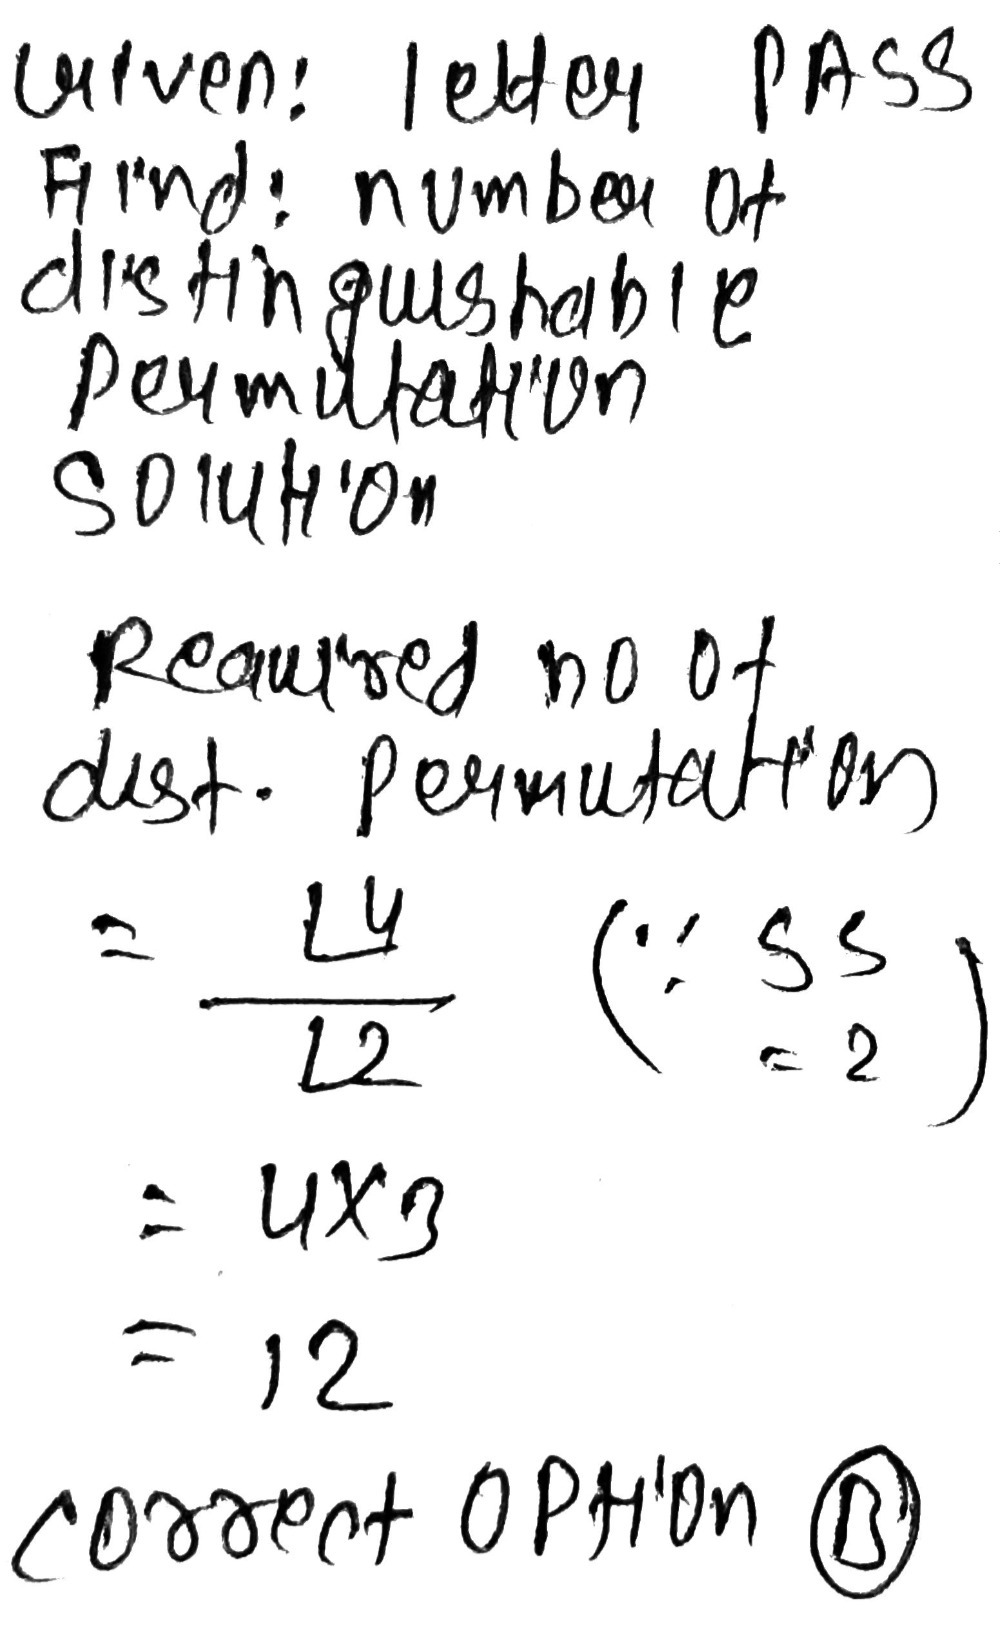 Given: letter PASS
Find: number of
distinguishable
Permutation
SOlution
Required no of
dist. Permutation
= ∟4 / ∟2 (∵ SS = 2)
= 4×3
= 12
correct OPtion Ⓑ